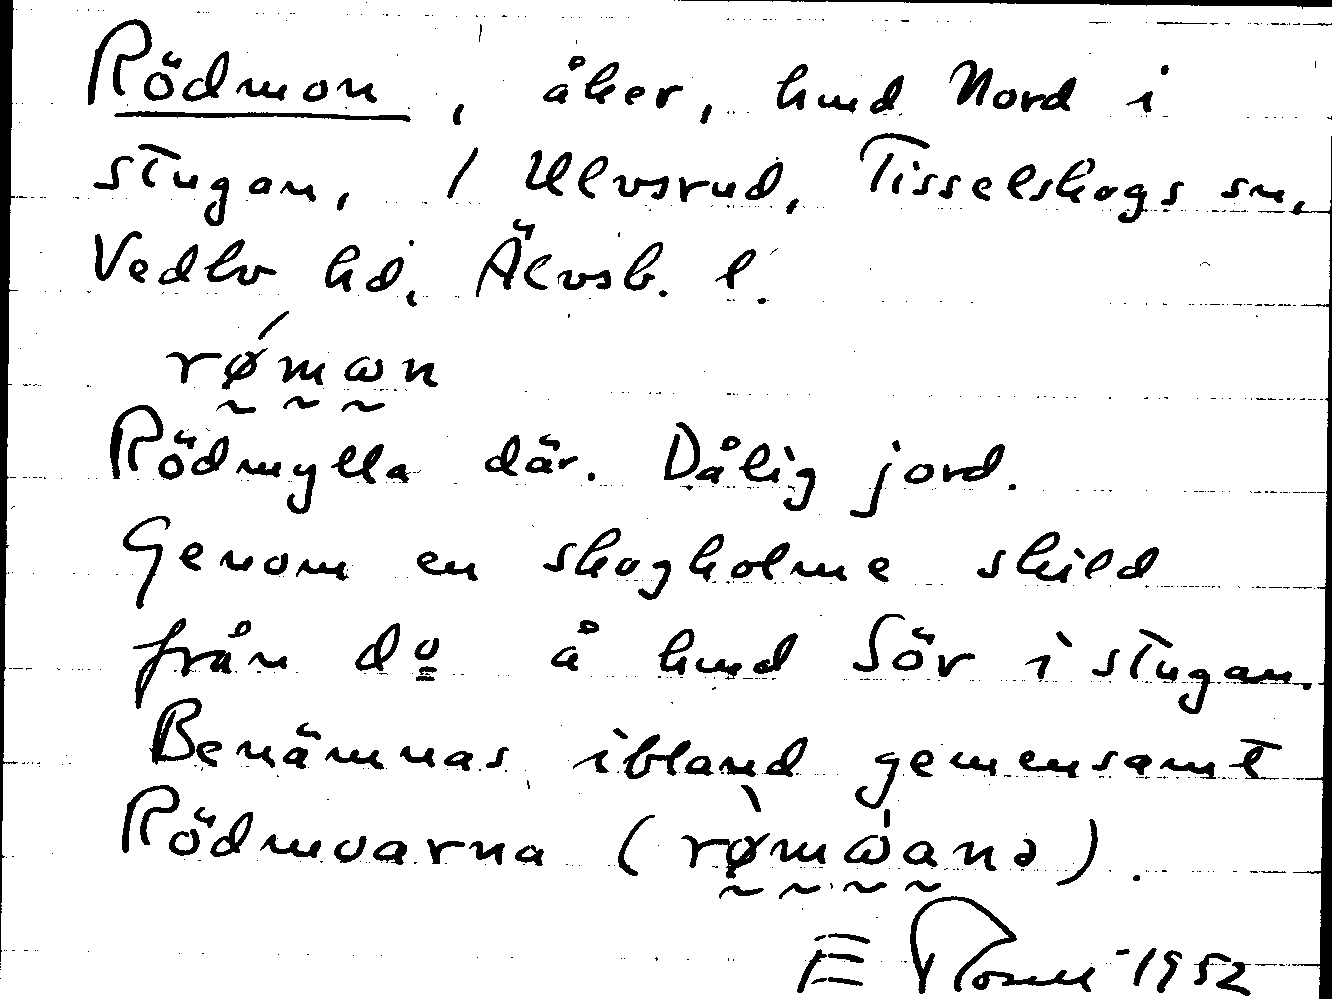 Rödmon, åker, hmd Nord i
stugan, 1 Ulvsrud, Tisselskogs sn,
Vedbo hd, Älvsb. l.
røman
Rödmylla där. Dålig jord.
Genom en skogholme skild
från do å hmd Sör i stugan.
Benämnas ibland gemensamt
Rödmoarna (rømωanə).
E Rosell -1952